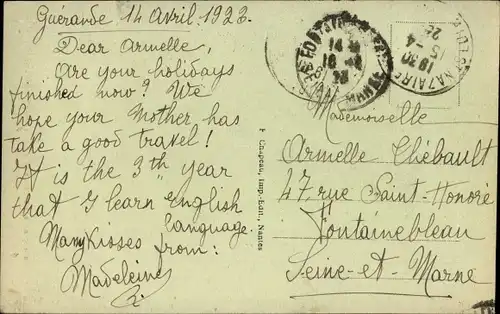 Guérande 14 Avril. 1923.
Dear Armelle,
Are your holidays
finished now? We
hope your Mother has
take a good travel!
It is the 3th year
that I learn English
language.
Many Kisses from:
Madeleine
F. Chapeau, Imp.-Edit., Nantes
NAZAIRE
1930
5-4
Mademoiselle
Armelle Thébault
47, rue Saint-Honoré
Fontainebleau
Seine-et-Marne